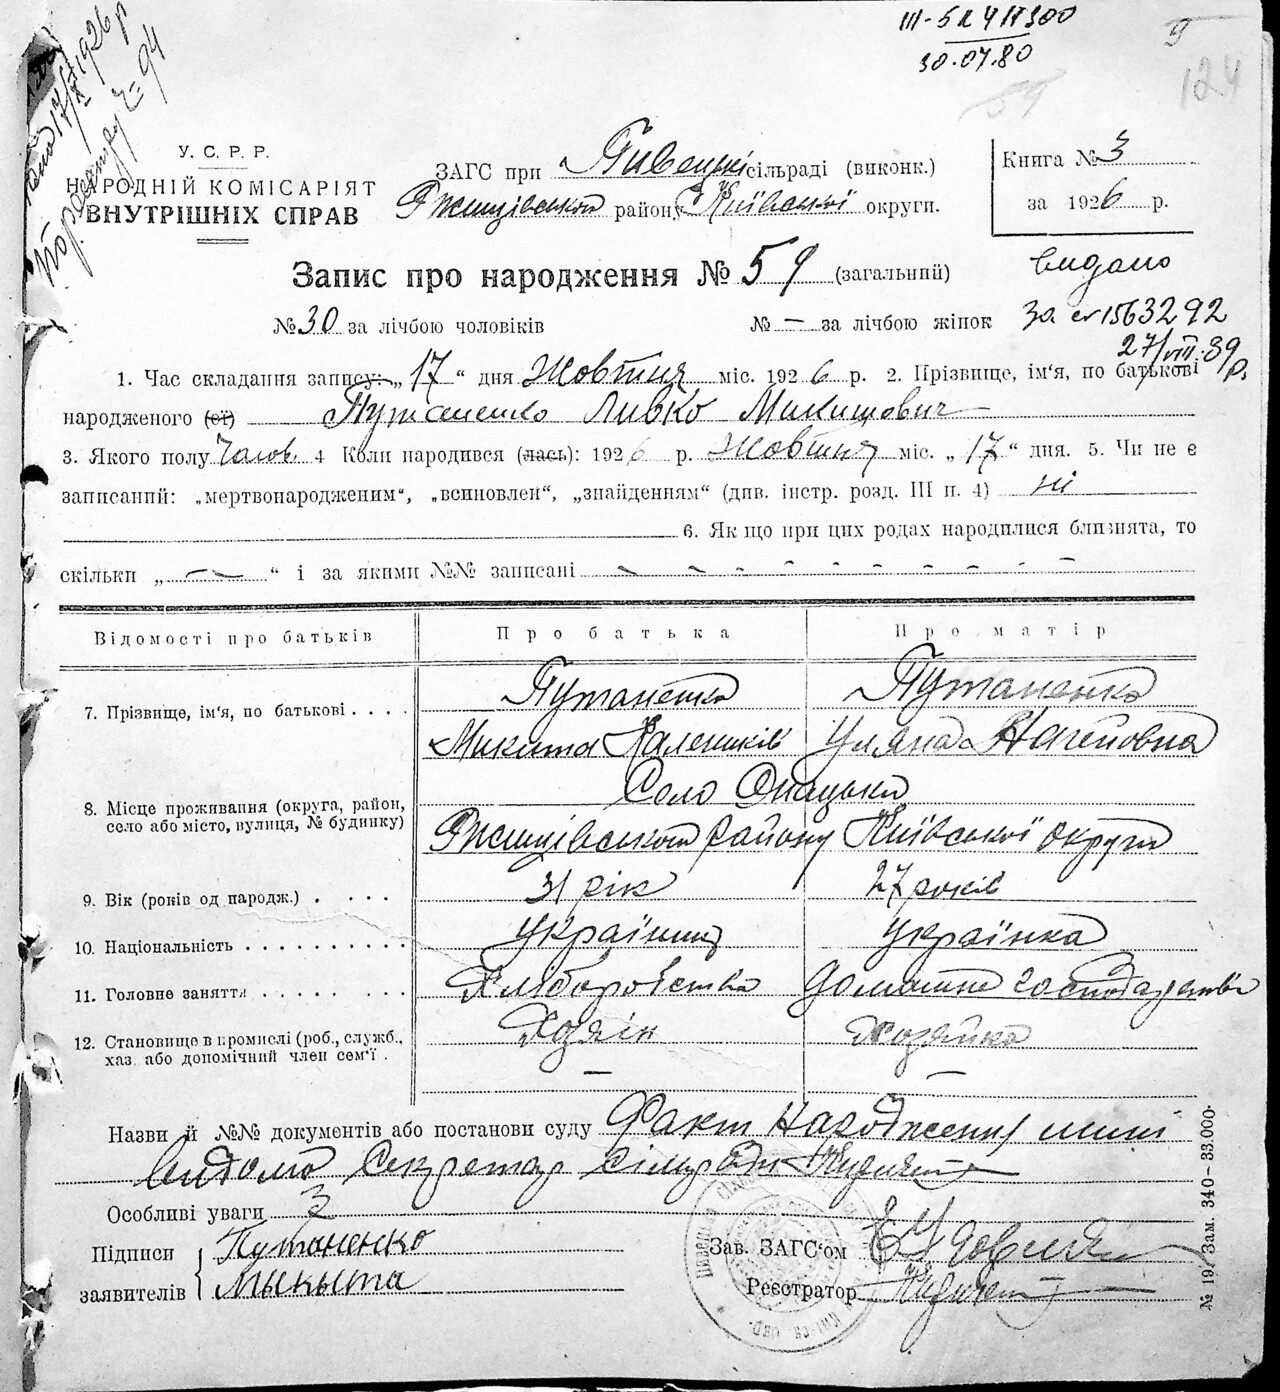 III-5БК 4П300
30.07.80
9
124
У. С. Р. Р.
НАРОДНІЙ КОМІСАРІЯТ
ВНУТРІШНІХ СПРАВ
ЗАГС при Пивецькі сільраді (виконк.)
Ржищівського району Київської округи.
Книга № 3
за 1926 р.
Запис про народження № 59 (загальний)
видано
№ 30 за лічбою чоловіків № — за лічбою жінок
1563292
27/VIII.39р.
1. Час складання запису: „17“ дня Жовтня міс. 1926 р. 2. Прізвище, ім'я, по батькові
народженого (ої) Путаненко Ливко Микитович
3. Якого полу Чолов. 4 Коли народився (лась): 1926 р. Жовтня міс. „17“ дня. 5. Чи не є
записаний: „мертвонародженим“, „всиновлен“, „знайденням“ (див. інстр. розд. III п. 4) ні
6. Якщо при цих родах народилися близнята, то
скільки „ — “ і за якими №№ записані - - - - - - - - -
Відомості про батьків Про батька Про матір
7. Прізвище, ім'я, по батькові . . . . Путаненко Путаненко
Микита Калеників Уляна
8. Місце проживання (округа, район,
село або місто, вулиця, № будинку)
Село
Ржищівського району Київської округи
9. Вік (років од народж.) . . . . 31 рік 27 років
10. Національність . . . . . . . . . . Українець Українка
11. Головне заняття . . . . . . . Хліборобства Домашне господарство
12. Становище в промислі (роб., служб.,
хаз. або допомічний член сем'ї .
Хозяін Хозяйка
— —
Назви й №№ документів або постанови суду Факт народження мині
відомо Секретар сільради
Особливі уваги З
Підписи Путаненко
заявителів Мыкыта
Зав. ЗАГС'ом
Реєстратор
№ 19. Зам. 340—33.000.